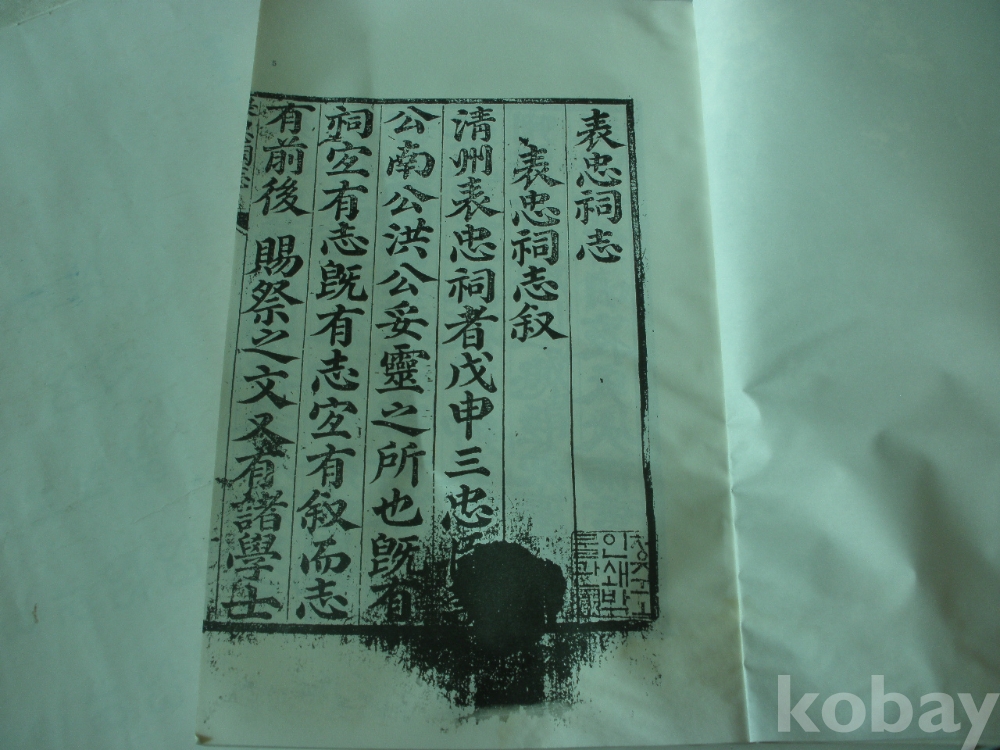 表忠祠志
表忠祠志叙
清州表忠祠者戊申三忠
公南公洪公妥靈之所也旣有
祠宐有志旣有志宐有叙而志
有前後 賜祭之文又有諸學士
청주고
인쇄박
kobay